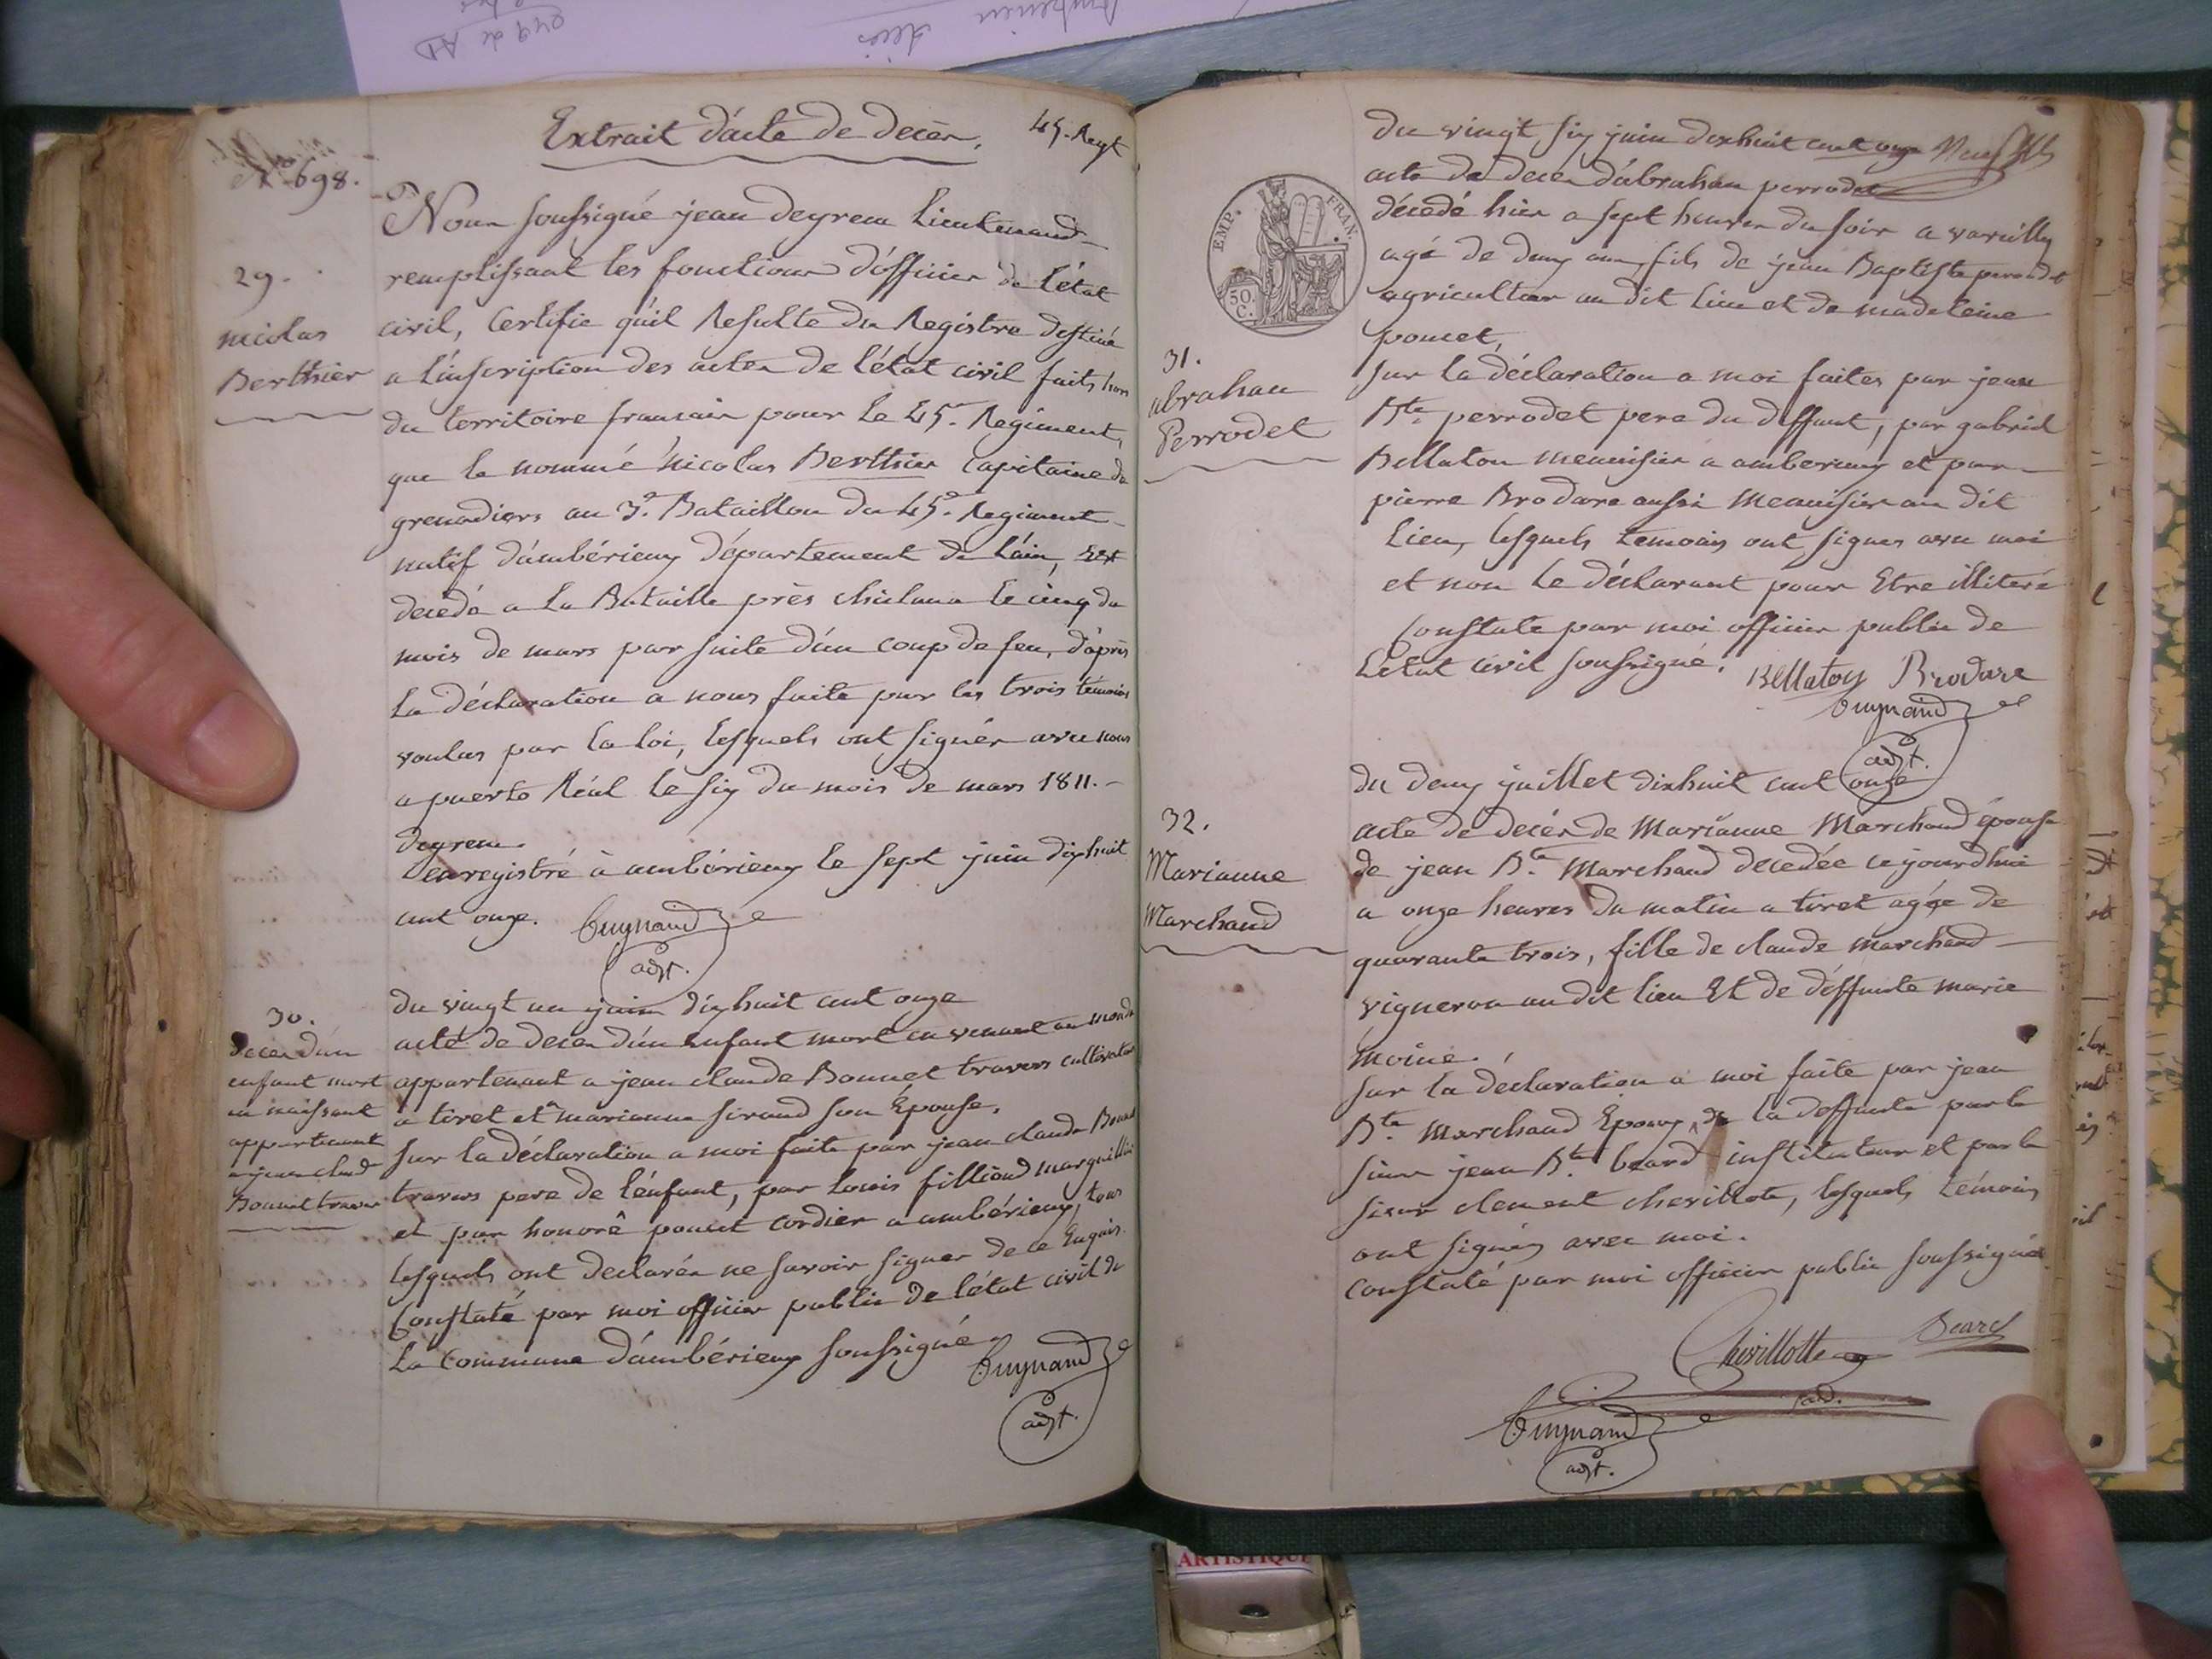 Extrait d'acte de decès,
45. Regt
N° 698.
29.
nicolas
Berthier
Nous soussigné jean deyreme Lieutenand
remplissant les fonctions d'officier de l'état
civil, Certifie qu'il Resulte du Registre destiné
a l'inscription des actes de l'état civil faits hors
du territoire francais pour le 45e. Regiment,
que le nommé nicolas Berthier Capitaine de
grenadiers au 3e. Bataillon du 45e. Regiment
natif d'ambérieux département de l'ain, Est
decedé a la Bataille près chiclana le cinq du
mois de mars par suite d'un coup de feu, d'après
la déclaration a nous faite par les trois témoins
voulus par la loi, lesquels ont signés avec nous
a puerto Réal le six du mois de mars 1811.
deyreme.
enregistré à ambérieux le sept juin dixhuit
cent onze. Guynand
adjt.
30.
decès d'un
enfant mort
en naissant
appartenant
a jean claude
Bonnet travers
du vingt un juin dixhuit cent onze
acte de decès d'un enfant mort en venant au monde
appartenant a jean claude Bonnet travers cultivateur
a tiret et a marianne sirand son Epouse.
Sur la déclaration a moi faite par jean claude Bonnet
travers pere de l'énfant, par Louis filliond marguillier
et par honoré poncet cordier a ambérieux, tous
lesquels ont declarés ne savoir signer de ce Enquis.
Constaté par moi officier public de l'état civil de
la Commune d'ambérieux soussigné.
Guynand
adjt.
EMP. FRAN.
50 C.
du vingt six juin dixhuit cent onze
acte de decès d'abraham perrodet
décedé hier a sept heures du soir a vareilly
agé de deux ans, fils de jean Baptiste perrodet
agriculteur au dit lieu et de madeleine
poncet,
31.
abraham
Perrodet
sur la déclaration a moi faites par jean
Bte. perrodet pere du deffunt, par gabriel
Bellaton menuisier a amberieux et par
pierre Brodare aussi Menuisier au dit
Lieu, lesquels temoins ont signes avec moi
et non le déclarant pour Etre illiteré
Constate par moi officier public de
L'etat civil soussigné. Bellaton Brodare
Guynand
adjt.
32.
Marianne
Marchand
du deux juillet dixhuit cent onze
acte de decés de Marianne Marchand épouse
de jean Bte. Marchand decedée cejourdhui
a onze heures du matin a tiret agée de
quarante trois, fille de claude marchand
vigneron au dit lieu Et de déffunte marie
moine.
Sur la déclaration a moi faite par jean
Bte. Marchand Epoux de la deffunte par le
sieur jean Bte. beard instituteur et par le
sieur clement chevillote, lesquels témoins
ont signés avec moi.
constaté par moi officier public soussigné
Chevillotte Beard
Guynand
adjt.
ARTISTIQUE